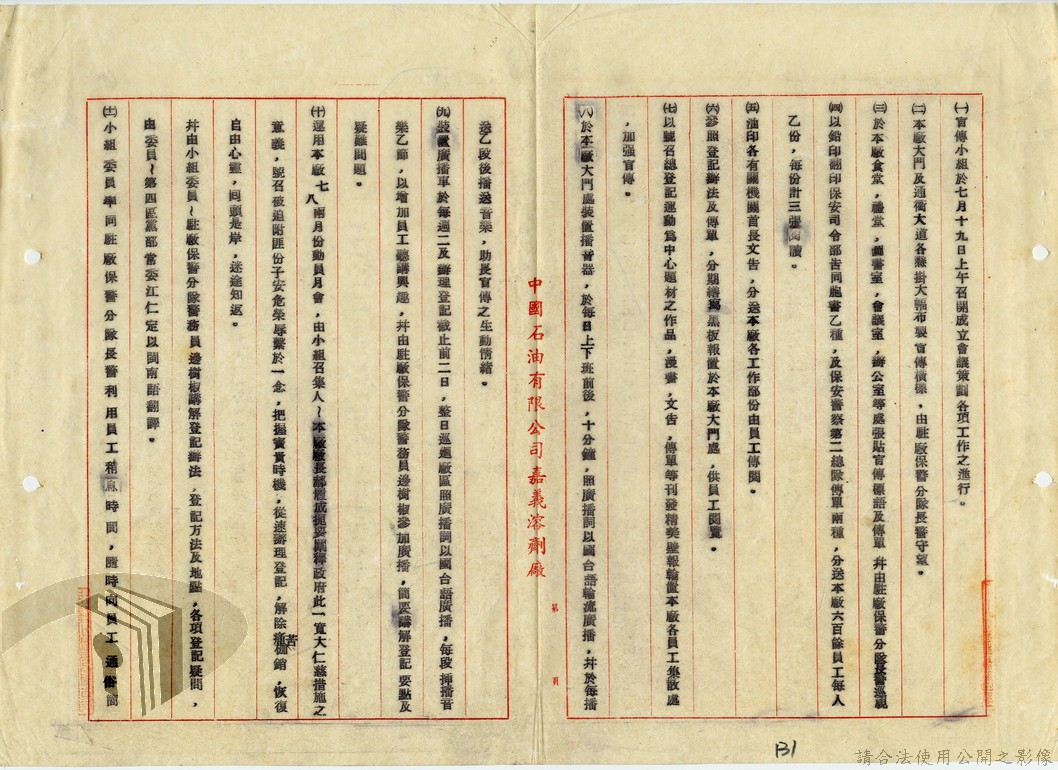 ㈠宣傳小組於七月十九日上午召開成立會議策劃各項工作之進行。
㈡本廠大門及通衢大道各懸掛大幅布製宣傳橫樑，由駐廠保警分隊長警守望。
㈢於本廠食堂，禮堂，圖書室，會議室，辦公室等處張貼宣傳標語及傳單，幷由駐廠保警分隊長警巡視
㈣以鉛印翻印保安司令部告同胞書乙種，及保安警察第二總隊傳單兩種，分送本廠六百餘員工每人
乙份，每份計三張閱讀。
㈤油印各有關機關首長文告，分送本廠各工作部份由員工傳閱。
㈥參照登記辦法及傳單，分期繕寫黑板報置於本廠大門處，供員工閱覽。
㈦以號召總登記運動為中心題材之作品，漫畫，文告，傳單等刊發精美壁報輪置本廠各員工集散處
，加强宣傳。
㈧於本廠大門處裝置播音器，於每日上下班前後，十分鐘，照廣播詞以國台語輪流廣播，幷於每播
中國石油有限公司嘉義溶劑廠
第　頁
送乙段後播送音樂，助長宣傳之生動情緒。
㈨裝置廣播車於每週二及辦理登記截止前二日，整日巡迴廠區照廣播詞以國台語廣播，每段揷播音
樂乙節，以增加員工聽講興趣，幷由駐廠保警分隊警務員邊樹椒參加廣播，簡要講解登記要點及
疑難問題。
㈩運用本廠七八兩月份動員月會，由小組召集人～本廠廠長部體成扼要闡釋政府此一寬大仁慈措施之
意義，號召被迫附匪份子安危榮辱繫於一念，把握寶貴時機，從速辦理登記，解除痛苦枷鎖，恢復
自由心靈，回頭是岸，迷途知返。
幷由小組委員～駐廠保警分隊警務員邊樹椒講解登記辦法，登記方法及地點，各項登記疑問，
由委員～第四區黨部常委江仁定以閩南語翻譯。
㈩㈠小組委員率同駐廠保警分隊長警利用員工稍息時間，隨時向員工通俗簡
B1
請合法使用公開之影像